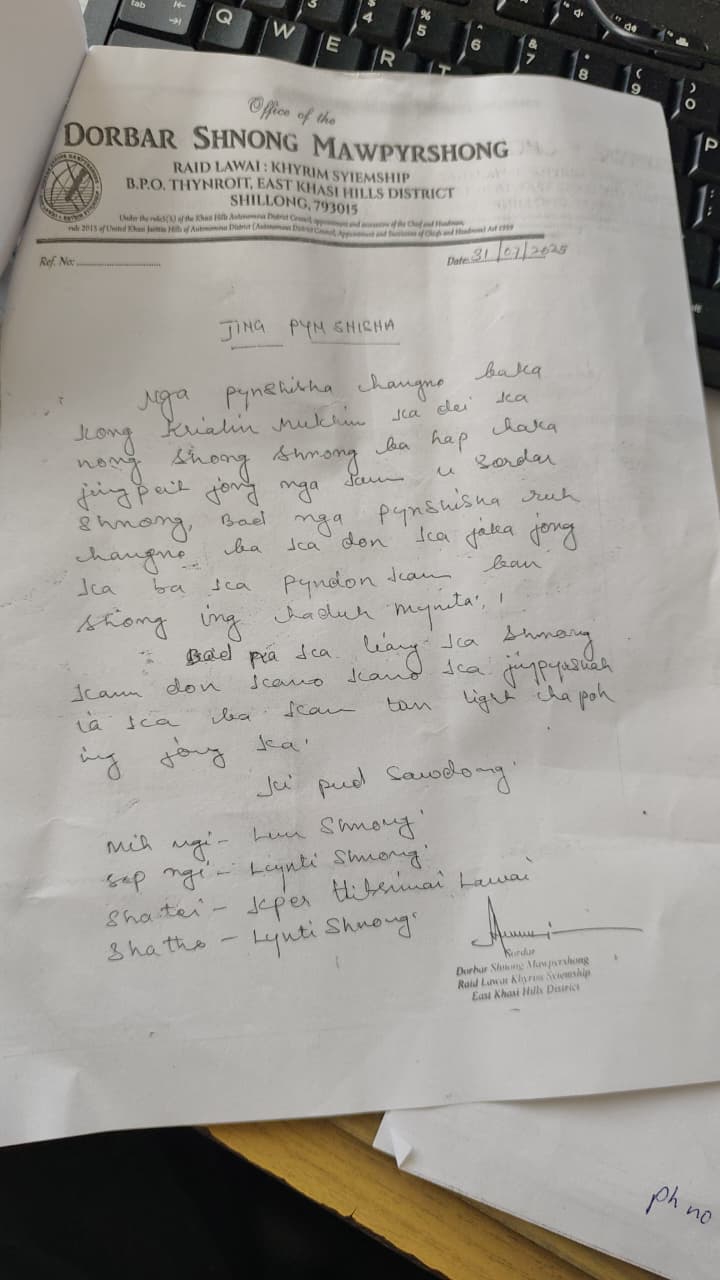 Office of the
DORBAR SHNONG MAWPYRSHONG
RAID LAWAI : KHYRIM SYIEMSHIP
B.P.O. THYNROIT, EAST KHASI HILLS DISTRICT
SHILLONG, 793015
Under the rules(3) of the Khasi Hills Autonomous District Council, appointment and succession of the Chief and Headman,
rule 2015 of United Khasi Jaintia Hills of Autonomous District (Autonomous District Council, Appointment and Succession of Chiefs and Headmen) Act 1959
Ref. No:
Date: 31/07/2025
JING PYNSHISHA
Nga pynshisha hangno baka
Kong Krialin Mukhim ka dei ka
nong shong shnong ba hap haka
jingpeit jong nga kum u Sordar
Shnong, Bad nga pynshisha ruh
hangno ba ka don ka jaka jong
ka ba ka pyndon kam ban
shong ing haduh mynta.
Bad na ka liang ka Shnong
kam don kano kano ka jingpyrshah
ia ka ba kan ton light ha poh
ing jong ka.
Ki pud sawdong
Mih ngi - Lum Shnong
Sep ngi - Lynti Shnong
Shatei - Kper Lawai
Shathe - Lynti Shnong
Sordar
Dorbar Shnong Mawpyrshong
Raid Lawai Khyrim Syiemship
East Khasi Hills District
ph no
tab
Q
W
E
R
T
P
$
4
%
5
^
6
&
7
8
(
9
)
0